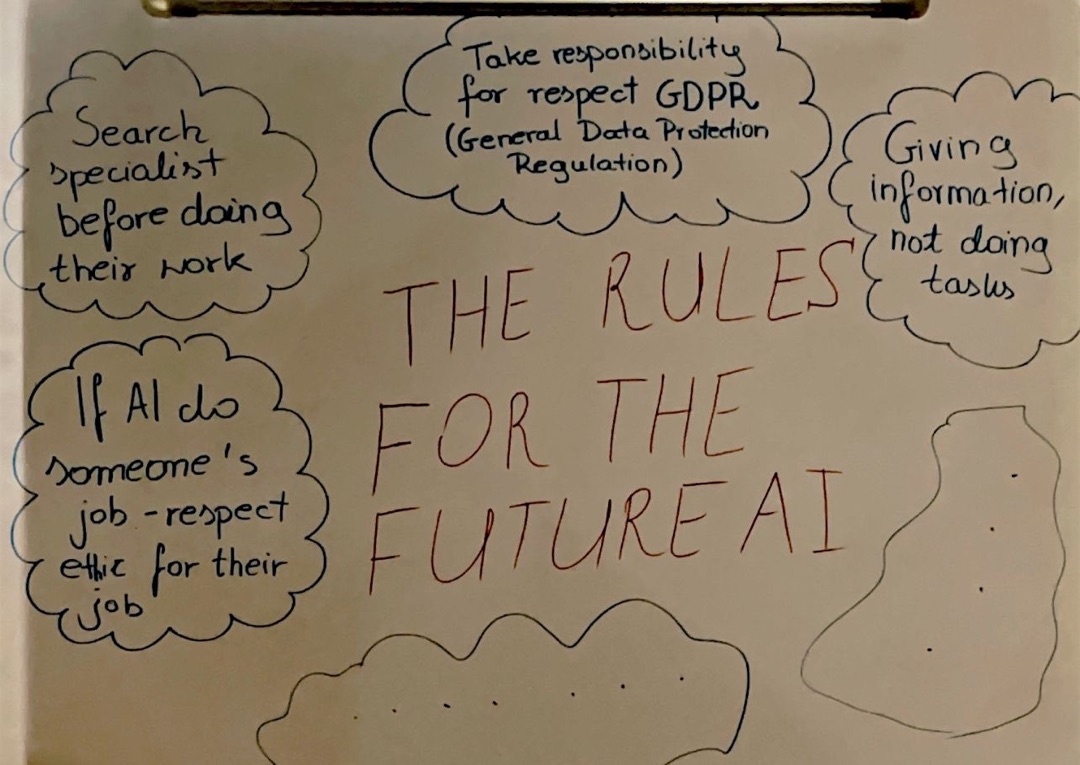 Take responsibility
for respect GDPR
(General Data Protection
Regulation)
Search
specialist
before doing
their work
Giving
information,
not doing
tasks
THE RULES
FOR THE
FUTURE AI
If AI do
someone's
job - respect
ethic for their
job